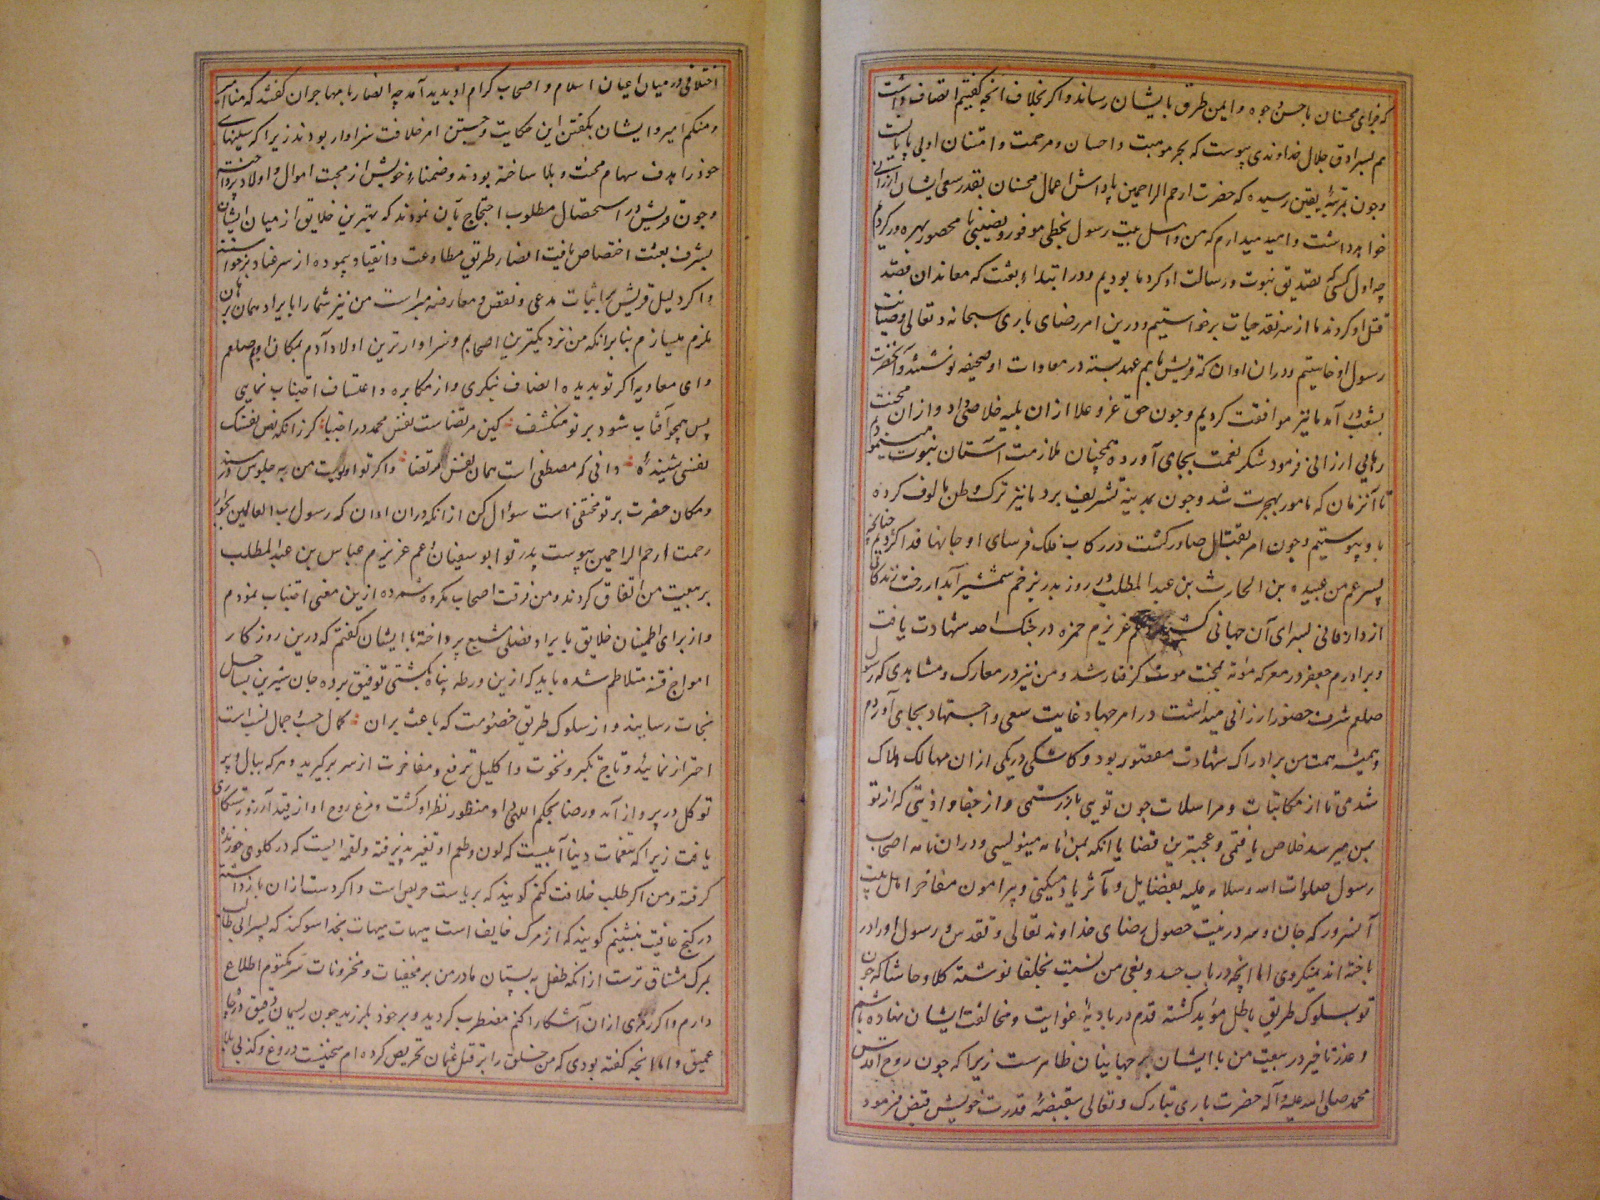 که جزای محسنان باحسن وجوه و ایمن طرق بایشان رساند و اکر بخلاف انچه کفتیم اتصاف داشت
هم بسرادق جلال خداوندی پیوست که بجز موهبت و احسان و مرحمت و امتنان اولی
و چون بمرتبهٔ یقین رسیده که حضرت ارحم الراحمین پاداش اعمال محسنان بقدر سعی ایشان ارزانی
خواهد داشت و امید میدارم که من و اهل بیت رسول بحظی موفور و نصیبی نا محصور بهره ور کردیم
چه اول کسی که تصدیق نبوت و رسالت او کرد ما بودیم و در ابتداء بعثت که معاندان قصد
قتل او کردند ما از سر نقد حیات برخواستیم و درین امر رضای باری سبحانه و تعالی و صیانت
رسول او خاستیم و دران اوان که قریش با هم عهد بسته در معادات او صحیفه نوشتند و آنحضرت
بشعب در آمد ما نیز موافقت کردیم و چون حق عز و علا ازان بلیه خلاصی داد و ازان محنت
رهایی ارزانی فرمود شکر نعمت بجای آورده همچنان ملازمت آستان نبوت مینمودیم
تا آنزمان که مامور بهجرت شد و چون بمدینه تشریف برد ما نیز ترک وطن مالوف کرده
باو پیوستیم و چون امر بقتال صادر کشت در رکاب فلک فرسای او جانها فدا کردیم چنانچه
پسر عم من عبیده بن الحارث بن عبد المطلب در روز بدر بزخم شمشیر آبدار رخت زندکانی
از دار فانی بسرای آن جهانی کشید عم عزیزم حمزه در جنک احد شهادت یافت
و برادرم جعفر در معرکه موته بمحنت موت کرفتار شد و من نیز در معارک و مشاهدی که رسول
صلعم شرف حضور ارزانی میداشت در امر جهاد غایت سعی و اجتهاد بجای آوردم
و همیشه همت من بر ادراک شهادت مقصور بود و کاشکی در یکی ازان مهالک هلاک
شدمی تا از مکاتبات و مراسلات چون تویی باز رستمی و از جفا و اذیتی که از تو
بمن میرسد خلاص یافتمی و عجبترین قضایا انکه بمن نامه مینویسی و دران نامه اصحاب
رسول صلوات الله و سلامه علیه بفضایل و مآثر یاد میکنی و پیرامون مفاخر اهل بیت
آنسرور که جان و سر در نیت حصول رضای خداوند تعالی و تقدس و رسول او را در
باخته اند نمیکردی اما انچه در باب حسد و بغی من نسبت بخلفا نوشته کلا و حاشا که چون
تو بسلوک طریق باطل موید کشته قدم در بادیهٔ غوایت و مخالفت ایشان نهاده باشم
و عذر تاخیر در بیعت من با ایشان بر جهانیان ظاهرست زیرا که چون روح اقدس
محمد صلی الله علیه و آله حضرت باری تبارک و تعالی بقبضهٔ قدرت خویش قبض فرمود
اختلافی در میان اعیان اسلام و اصحاب کرام او بدید آمد چه انصار با مهاجران کفتند که منا امیر
و منکم امیر و ایشان بکفتن این حکایت و جستن امر خلافت سزاوار بودند زیرا که سینهای
خود را هدف سهام محنت و بلا ساخته بودند و ضمناء خویش از محبت اموال و اولاد پرداخته
و چون قریش در استحصال مطلوب احتجاج بآن نمودند که بهترین خلایق از میان ایشان
بشرف بعثت اختصاص یافت انصار طریق مطاوعت و انقیاد پیموده از سر عناد برخواستند
و اکر دلیل قریش بر اثبات مدعی و نقض و معارضه مبراست من نیز شما را بایراد همان برهان
ملزم میسازم بنابر انکه من نزدیکترین اصحابم و سزاوارترین اولاد آدم بمکان او صلعم
و ای معاویه اکر تو بدیده انصاف بنکری و از مکابره و اعتساف اجتناب نمایی
پس همچو آفتاب شود بر تو منکشف کین مرتضاست نفس محمد در اختیار کر زانکه نص نفسک
نفسی شنیدهٔ دانی که مصطفی است همان نفس مرتضا و اکر تو اولویت من به جلوس مسند
و مکان حضرت بر تو مختفی است سؤال کن از انکه دران اوان که رسول رب العالمین بجوار
رحمت ارحم الراحمین پیوست پدر تو ابو سفیان و عم عزیزم عباس بن عبد المطلب
بر بیعت من اتفاق کردند و من فرقت اصحاب مکروه شمرده ازین معنی اجتناب نمودم
و از برای اطمینان خلایق بایراد فصلی مشبع پرداخته با ایشان کفتم که درین روزکار
امواج فتنه متلاطم شده باید که ازین ورطه پناه بکشتی توفیق برده جان شیرین بساحل
نجات رسانید و از سلوک طریق خصومت که باعث بران کمال حسب و جمال نسب است
احتراز نمائید و تاج تکبر و نخوت و اکلیل ترفع و مفاخرت از سر برکیرید و هر که ببال و پر
توکل در پرواز آمد و رضا بحکم اللهی او منظور نظر او کشت و مرغ روح او از قید آرزو رستکاری
یافت زیرا که تنعمات دنیا آبیست که لون و طعم او تغیر پذیرفته و لقمه ایست که در کلوی خورنده
کرفته و من اکر طلب خلافت کنم کویند که بریاست حریص است و اکر دست ازان باز داشته
در کنج عافیت بنشینم کویند که از مرک خایف است هیهات هیهات بخدا سوکند که پسر ابی طالب
بمرک مشتاق ترست از انکه طفل به پستان مادر من بر مخفیات و مخزونات سر مکتوم اطلاع
دارم و اکر رمزی ازان آشکارا کنم مضطرب کردید و بر خود بلرزید چون ریسمان دقیق در چاه
عمیق و اما انچه کفته بودی که من خلق را بر قتل عثمان تحریص کرده ام سخنیست دروغ و کذبی